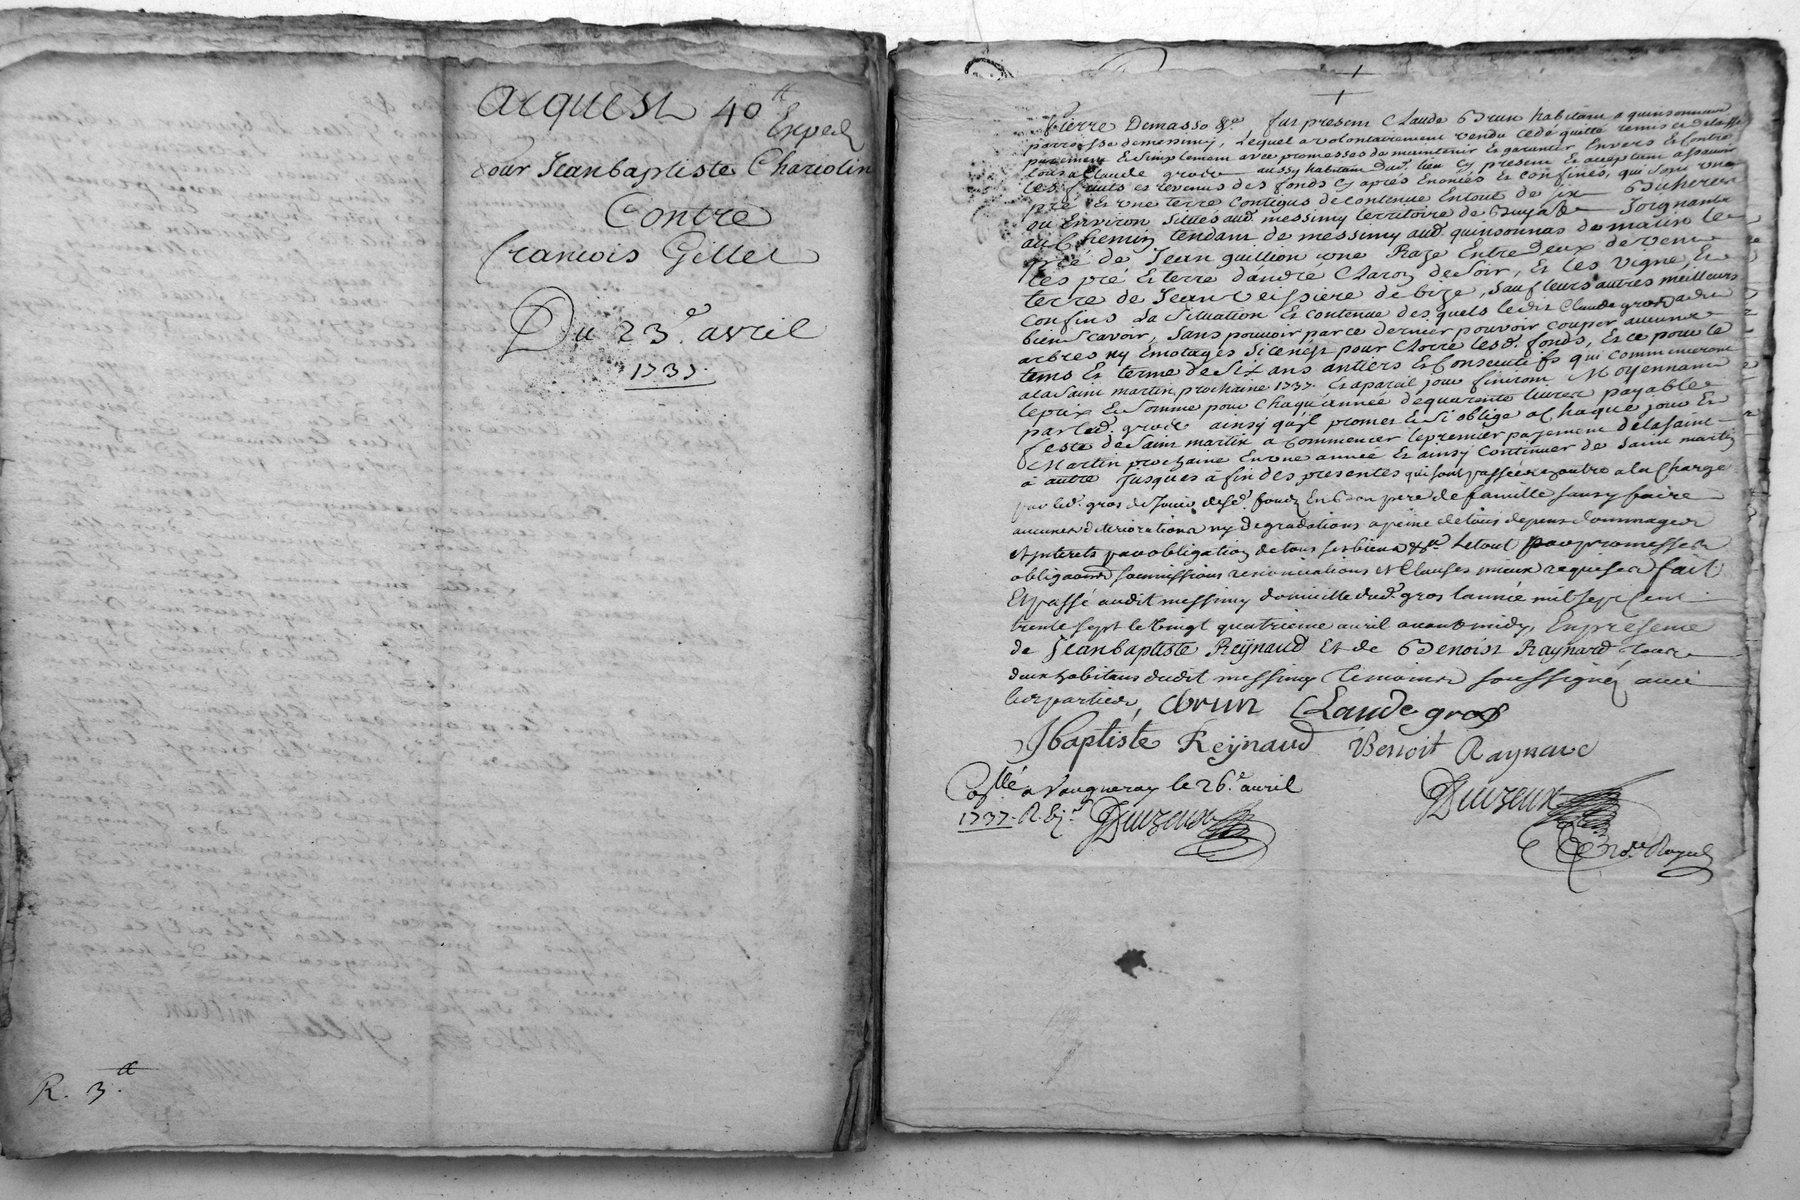 acquest 40ᵗᵗ
Exped
pour Jeanbaptiste Chariolin
Contre
francois Gillet
Du 23ᵉ. avril
1737.
R. 3.ᵗᵗ
Pierre Demasso &ᵃ fut present Claude Brun habitant a quinsonnas
parroisse de messimy, Lequel a volontairement vendu cedé quitté remis et delaissé
purement Et Simplement avec promesses de maintenir Et garantir Envers Et Contre
tous a Claude gros aussy habitant dud. lieu Cy present Et acceptant assavoir
les fruits et revenus des fonds Cy aprés Enoncés et confinés, qui sont une
pré Et une terre Contigus de contenue En tout de six Bicherées
ou Environ situés aud. messimy territoire de Joignants
au Chemin tendant de messimy aud. quinsonnas de matin le
pré de Jean guillion une Raze Entre deux de vent
les pré Et terre d'andré Claron de soir, Et les vigne, Et
terre de Jean Veissiere de bize, sauf leurs autres meilleurs
confins La Situation Et contenue des quels ledit Claude gros a dit
bien Scavoir, Sans pouvoir par ce dernier pouvoir couper aucuns
arbres ny Emotages Si ce n'est pour Clorre lesd. fonds, Et ce pour le
tems Et terme de Six ans antiers Et Consecutifs qui Commenceront
a la Saint martin prochaine 1737. Et a pareil jour finiront Moyennant
le prix Et Somme pour Chaqu'année de quarente livres payable
par led. gros ainsy qu'il promet Et S'i oblige a Chaque jour Et
feste de Saint martin a Commencer le premier payement de la Saint
Martin prochaine En une année Et ainsy Continuer de Saint martin
a autre jusques à fin des presentes qui sont passées En outre a la Charge
par led. gros de Jouir desd. fonds En Bon pere de famille sans y faire
aucunes deteriorations ny degradations a peine de tous depens dommages
et interets par obligation de tous ses biens &ᵃ. Le tout par promesses
obligaons soumissions renonciations et Clauses mieux requises fait
Et passé audit messimy domicille dud. gros l'année mil sept Cent
trente sept le vingt quatrieme avril avant midy, En presence
de Jeanbaptiste Reÿnaud Et de Benoist Raynard, tous
deux habitans dudit messimy temoins soussignés avec
les parties, Cbrun Claude gros
Jbaptiste Reÿnaud Benoit Raynard
Collé a Vaugneray le 26ᵉ. avril
1737. R.